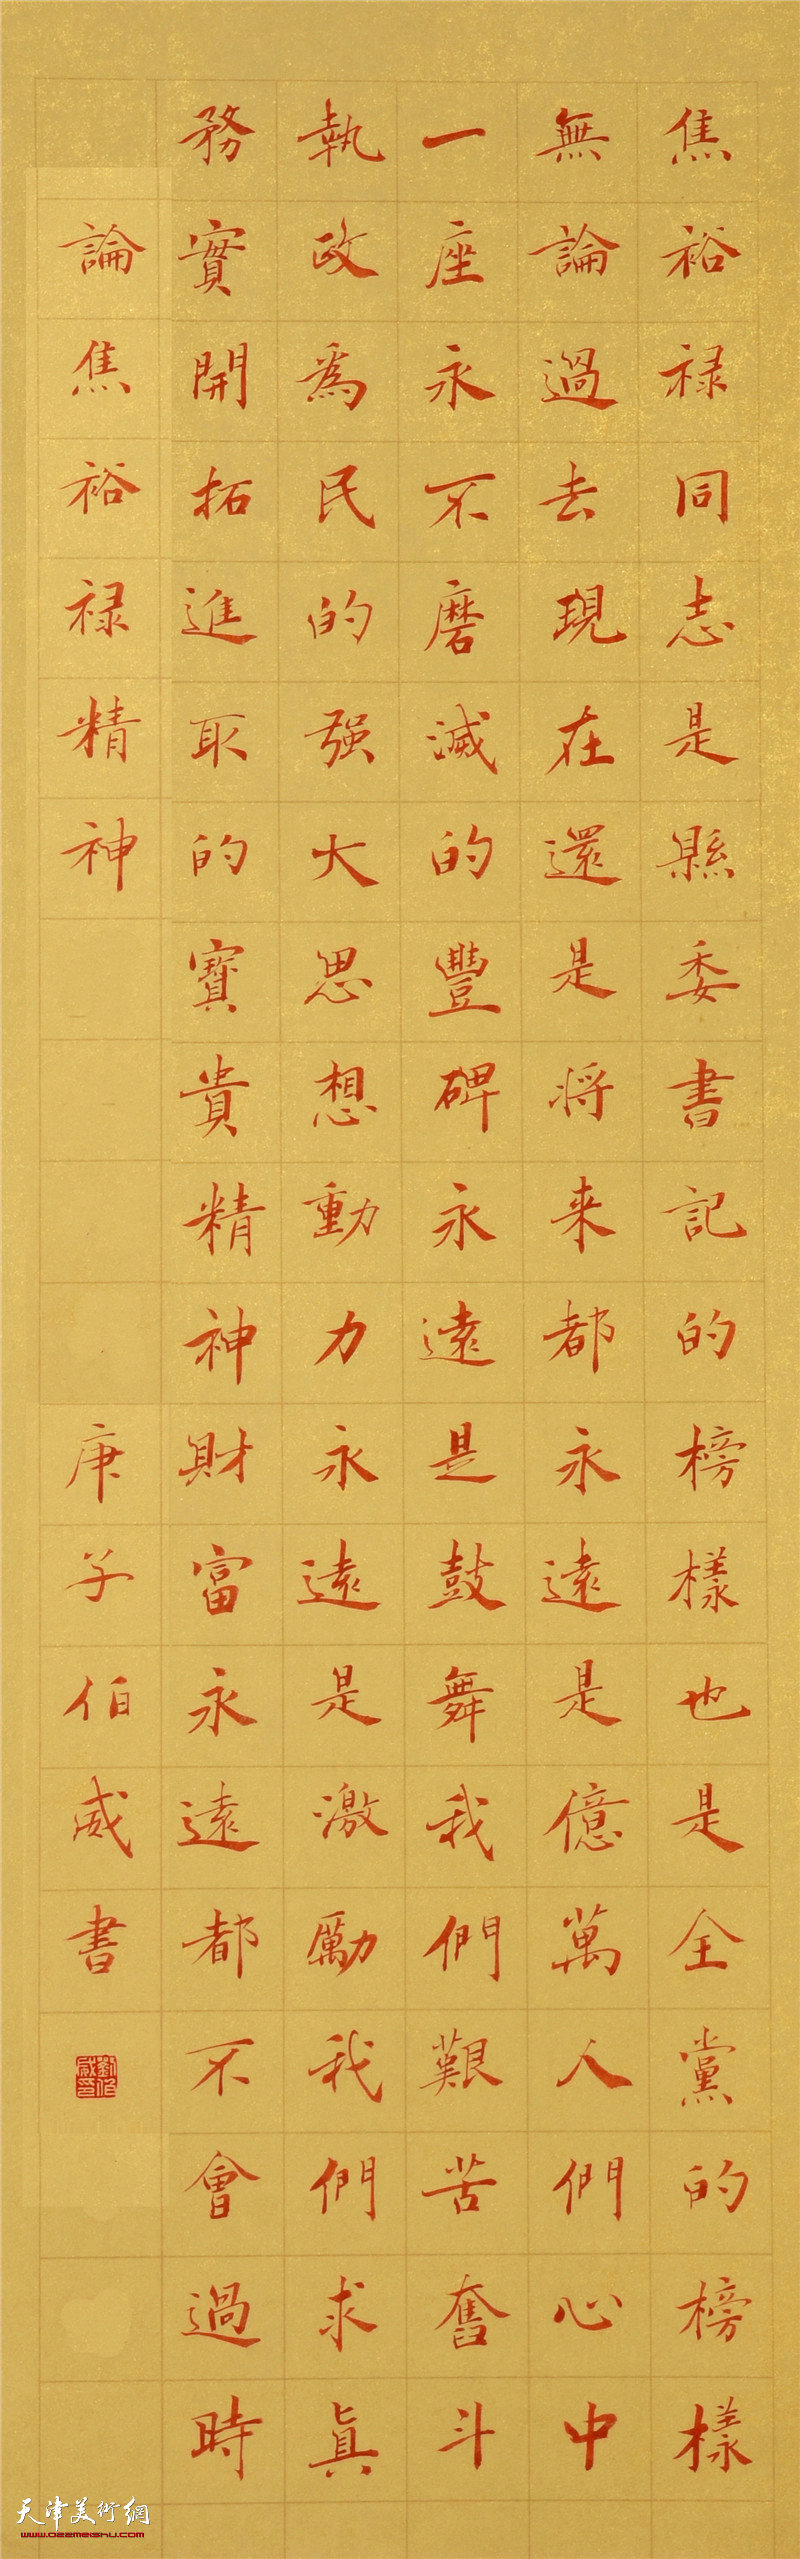 焦裕禄同志是縣委書記的榜樣也是全黨的榜樣
無論過去現在還是将来都永遠是億萬人們心中
一座永不磨滅的豐碑永遠是鼓舞我們艱苦奮斗
執政為民的强大思想動力永遠是激勵我們求真
務實開拓進取的寶貴精神財富永遠都不會過時
論焦裕禄精神
庚子伯威書
劉伯威印
天津美術網
www.022meishu.com